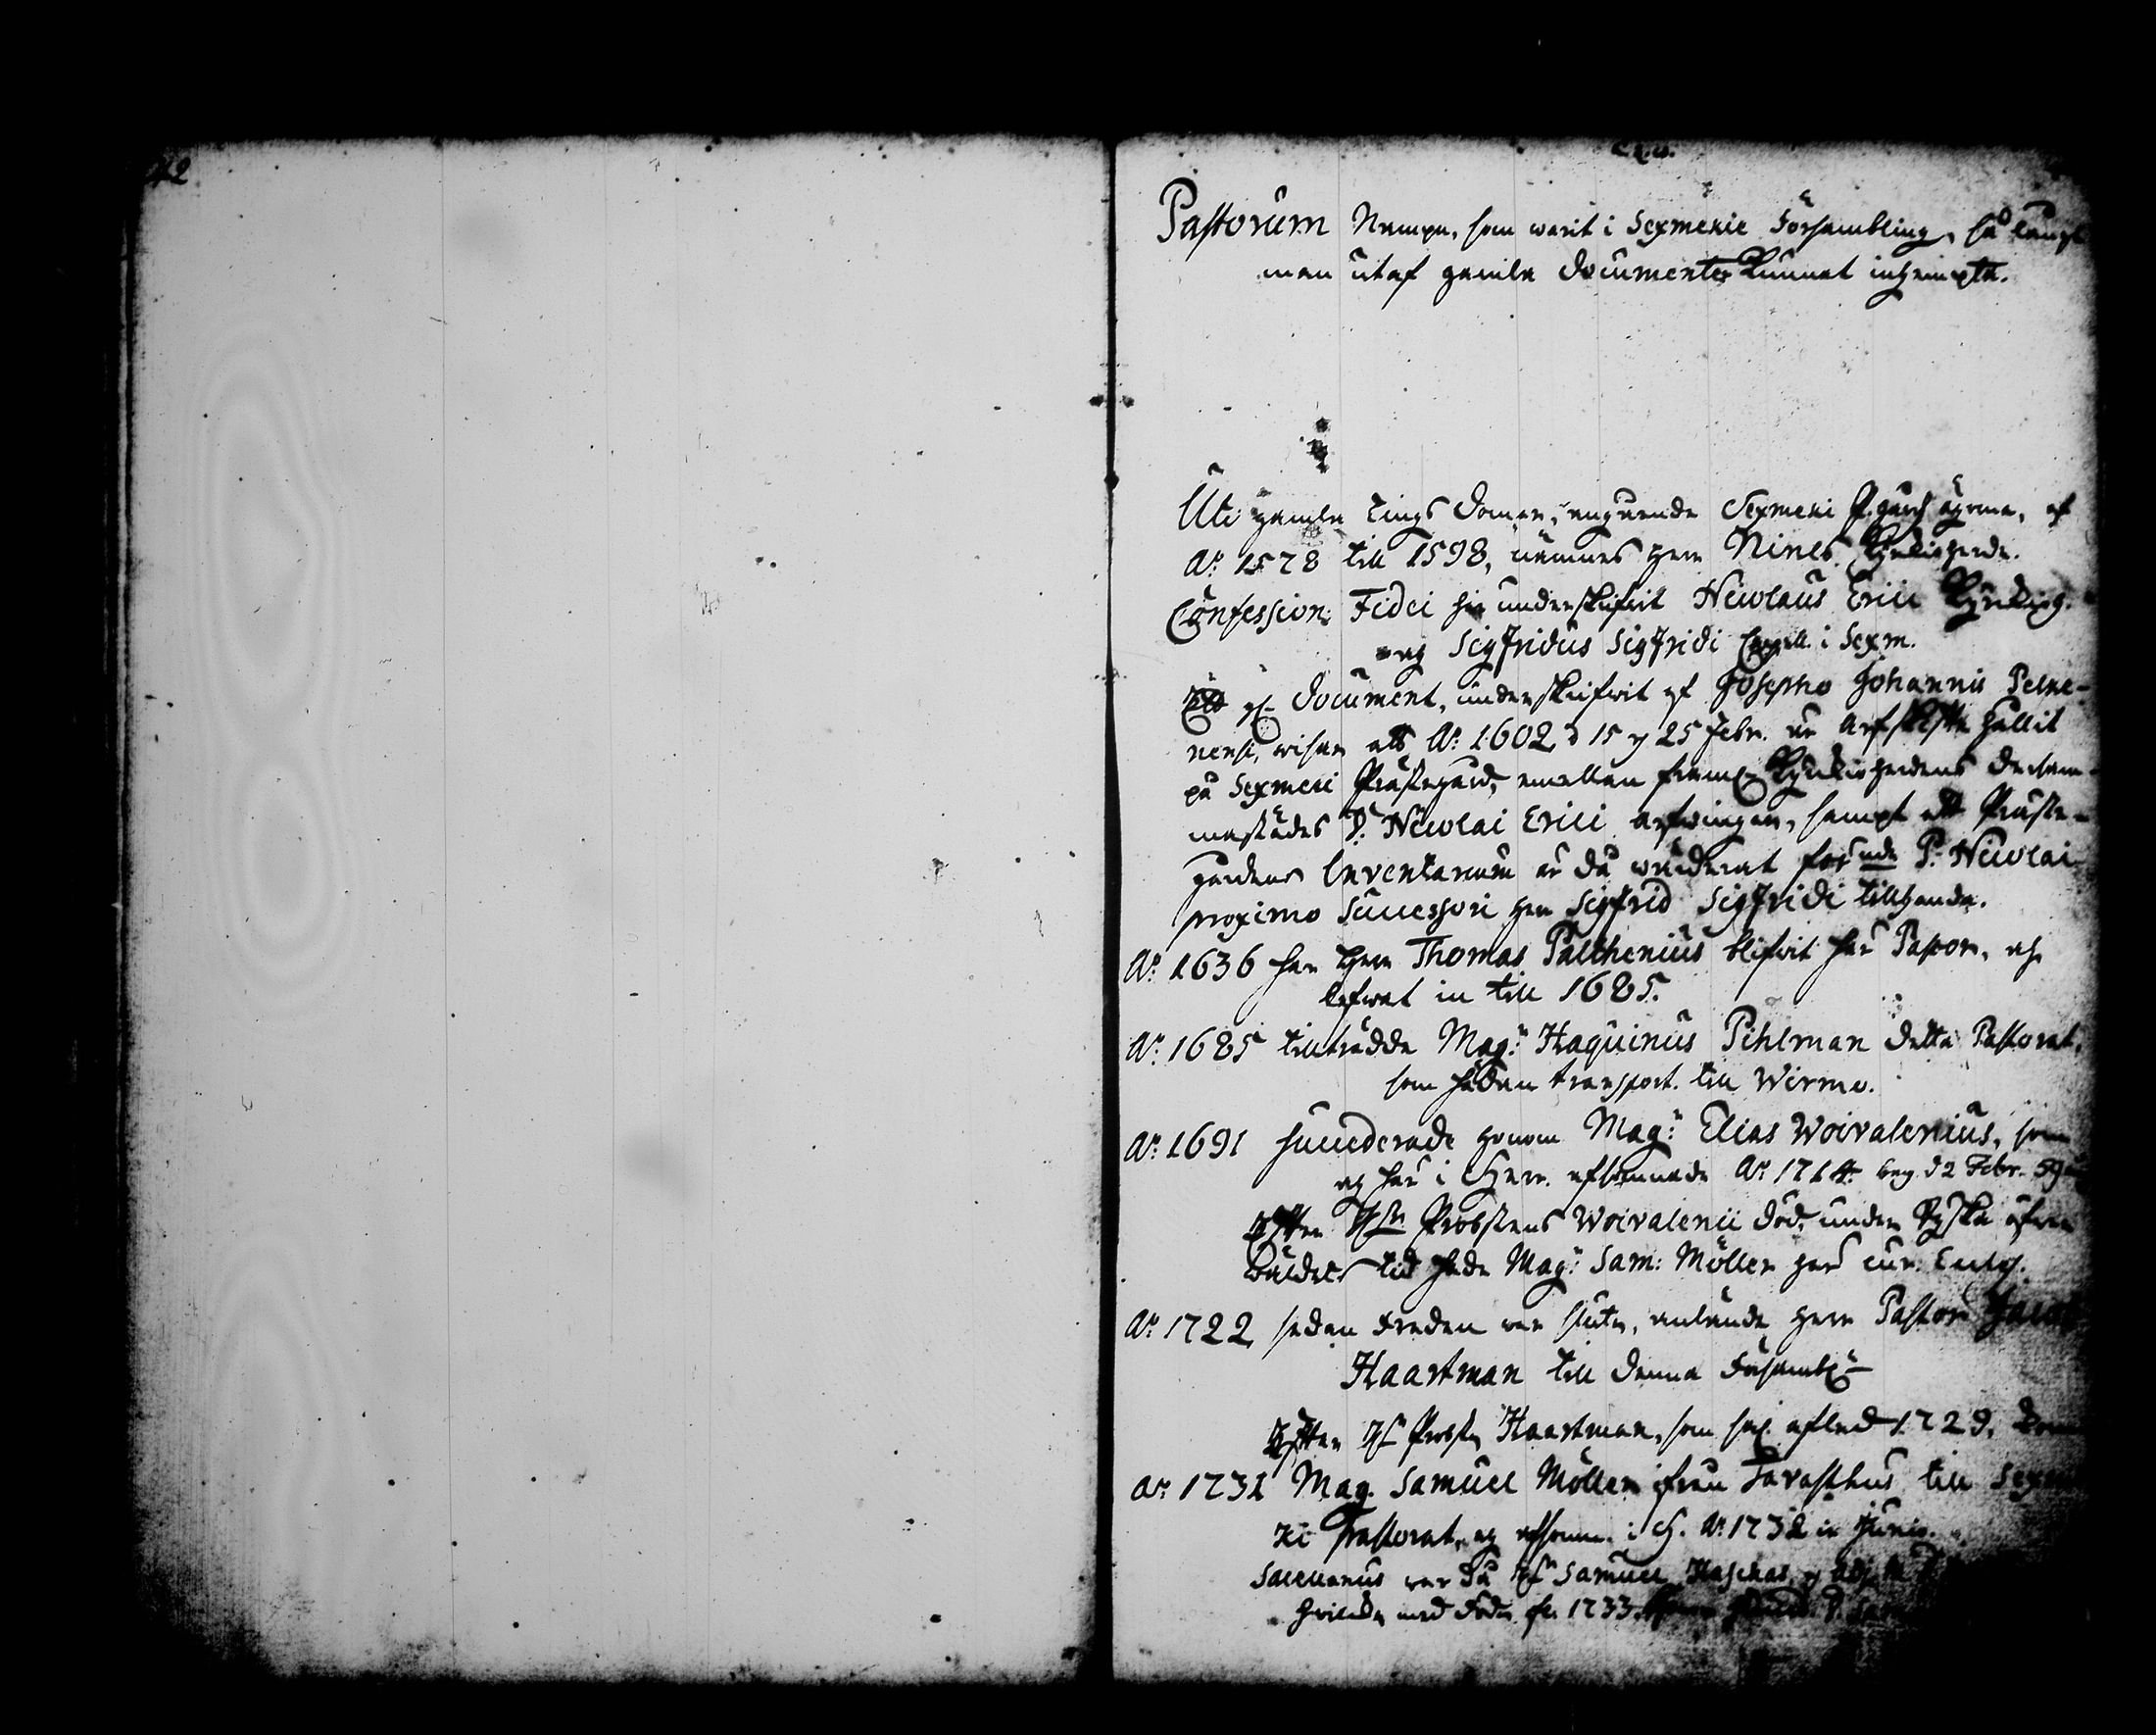 42
Pastorum Nampn, som warit i Sexmekie Försambling, så långt
man utaf gamla documenter kunnat inhempta.
Uti gamla Tings domar, angående Sexmeki P.gårds ägorna, af
A:o 1578 till 1598, nämnes Herr Nines Kyrkioherde.
Confession: Fidei har underskrifwit Nicolaus Erici Kyrkioh.
og Sigfridus Sigfridi Capell. i Sexm.
document, underskrifwit af Josepho Johannis
wisar att A:o 1602 d 15 og 25 Febr. är arfskifte hållit
på Sexmeki Prästegård, emellan fram Kyrkioherdens dersam-
mastädes D. Nicolai Erici arfwingar, sampt att Präste-
gårdens Inventarium är då wärderat D. Nicolai
proximo Successori Herr Sigfrid Sigfridi tillhanda.
A:o 1636 har Herr Thomas Palthenius blifwit här Pastor, och
lefwat in till 1685.
A:o 1685 tillträdde Mag:r Haquinus Pihlman detta Pastorat,
som hädan transport. till Wirmo.
A:o 1691 succederade honom Mag:r Elias Woivalenius, som
og här i Herr. afsomnade A:o 1714. beg. d 2 Febr.
Efter Probstens Woivalenii död, under Ryska öfwer
wäldets tid hade Mag:r Sam: Möller här cur. Eccles.
A:o 1722 sedan freden war sluten, anlände Herr Pastor Jacob
Haartman till denna Försambl
Efter Probsten Haartman, som afled 1729, kom
A:o 1731 Mag. Samuel Möller ifrån Tavasthus till Sexm
ki Pastorat, og afsomn. i H. A:o 1732 in Junio.
Sacellanus war då Samuel
med döden 1733.